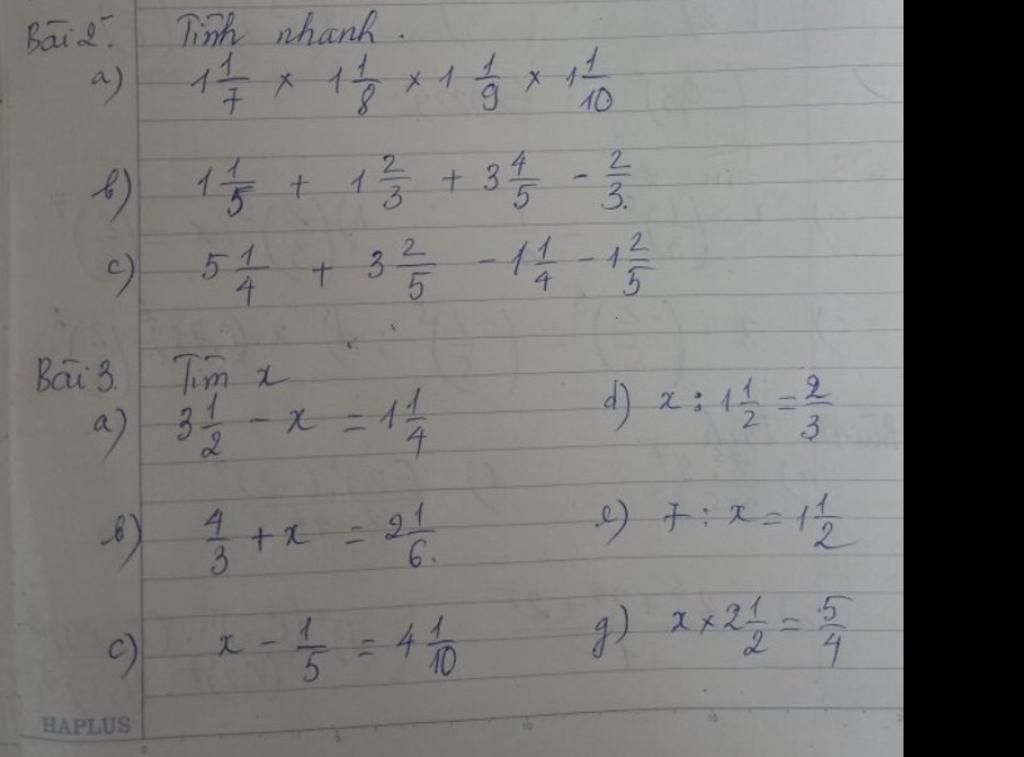 Bài 2. Tính nhanh.
a) 1 1/7 × 1 1/8 × 1 1/9 × 1 1/10
b) 1 1/5 + 1 2/3 + 3 4/5 - 2/3.
c) 5 1/4 + 3 2/5 - 1 1/4 - 1 2/5
Bài 3. Tìm x
a) 3 1/2 - x = 1 1/4 d) x : 1 1/2 = 2/3
b) 4/3 + x = 2 1/6. e) 7 : x = 1 1/2
c) x - 1/5 = 4 1/10 g) x × 2 1/2 = 5/4
HAPLUS